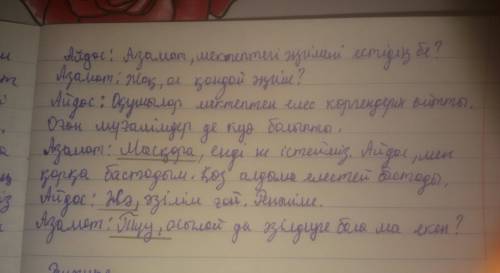 Айдос: Азамат, мектептегі әңгімені естідің бе?
Азамат: Жоқ, ол қандай әңгіме?
Айдос: Оқушылар мектептен елес көргендерін айтты.
Оған мұғалімдер де куә болыпты.
Азамат: Масқара, енді не істейміз. Айдос, мен
қорқа бастадым. Көз алдыма елестей бастады.
Айдос: Жә, әзілім ғой. Ренжіме.
Азамат: Туу, осылай да әзілдеуге бола ма екен?